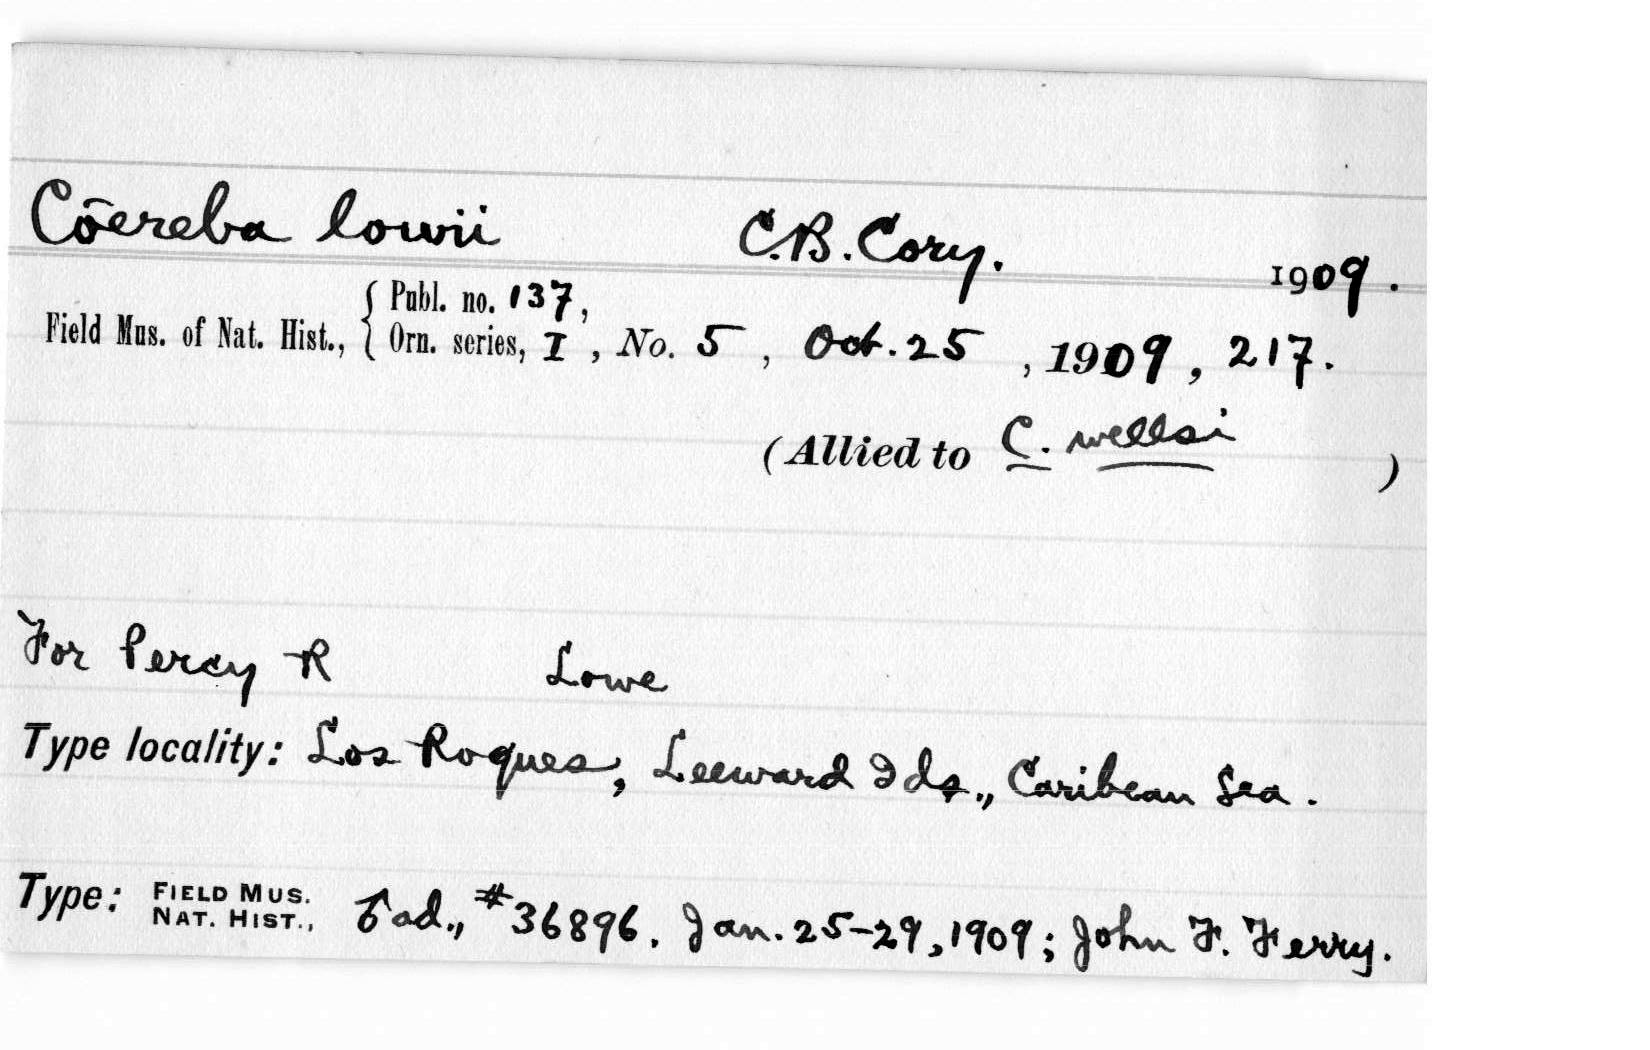 Cōereba lowii C.B. Cory. 1909.
Field Mus. of Nat. Hist., { Publ. no. 137,
Orn. series, I, No. 5, Oct. 25, 1909, 217.
(Allied to C. wellsi)
For Percy R Lowe
Type locality: Los Roques, Leeward Ids., Caribean Sea.
Type: FIELD MUS. NAT. HIST., ♂ ad., #36896. Jan. 25-29, 1909; John F. Ferry.